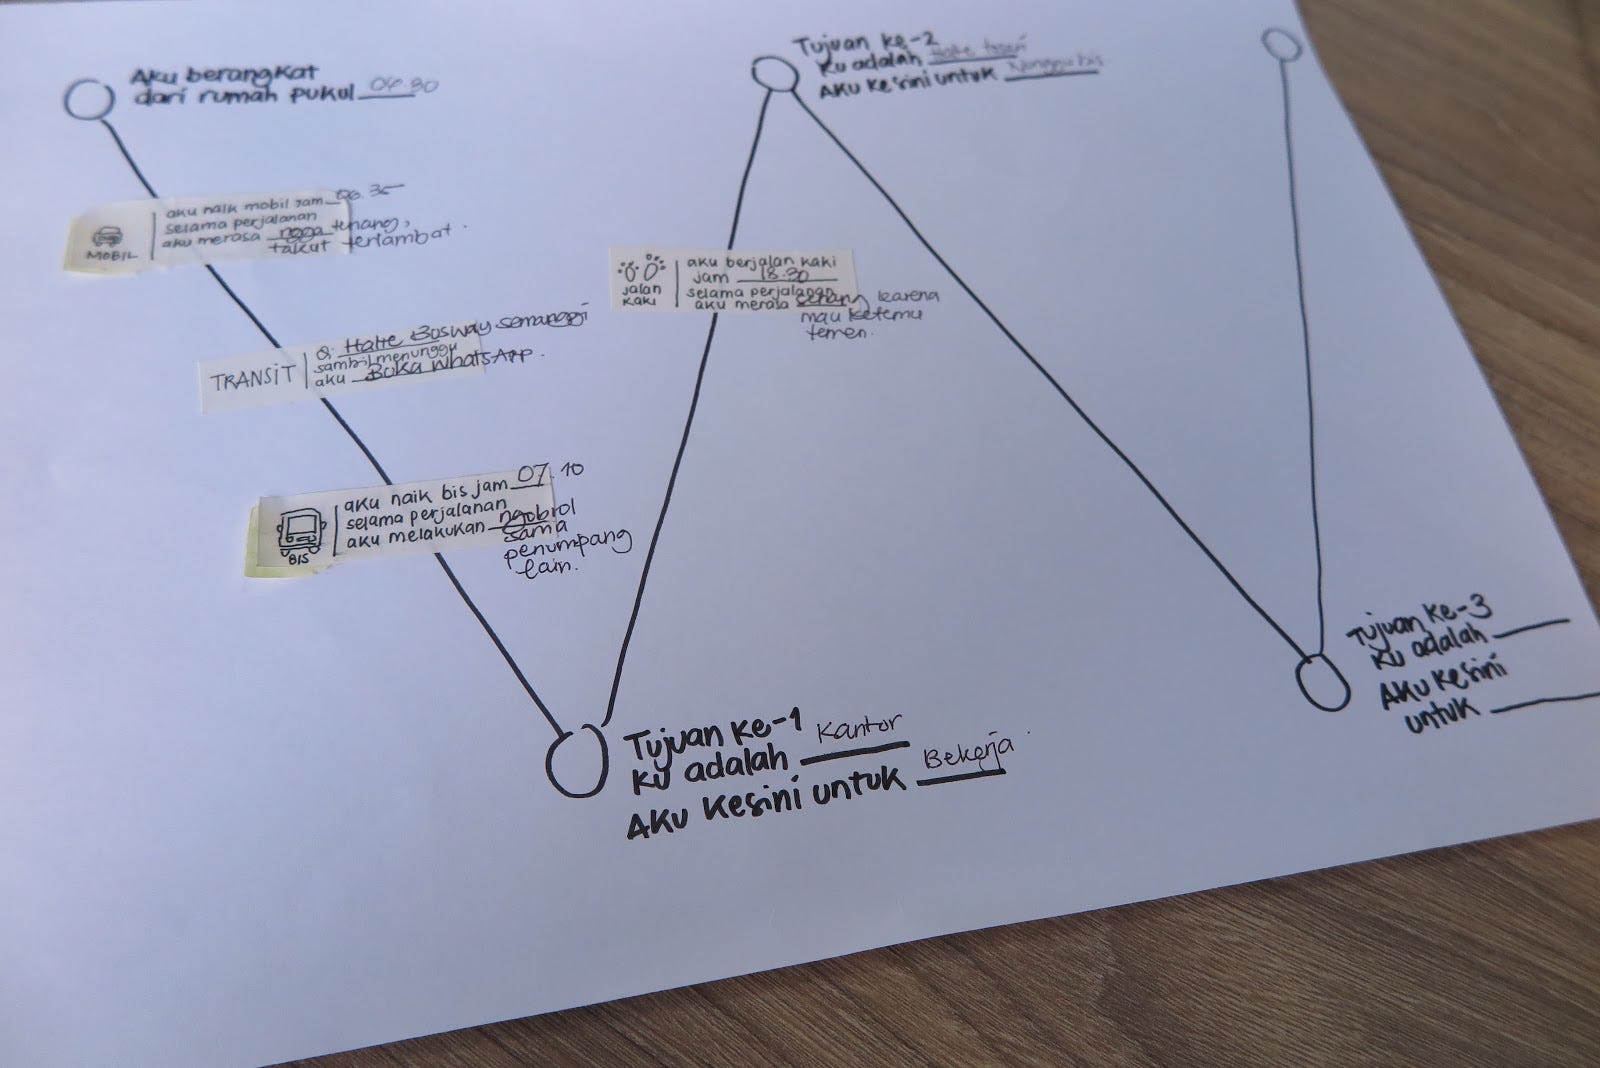 Aku berangkat
dari rumah pukul 06 30
MOBIL
aku naik mobil jam 06.35
selama perjalanan
aku merasa ngga tenang,
takut terlambat.
TRANSIT
di Halte Busway Semanggi
sambil menunggu
aku Buka WhatsApp.
BIS
aku naik bis jam 07.10
selama perjalanan
aku melakukan ngobrol
sama
penumpang
lain.
Tujuan ke-1
ku adalah Kantor
Aku kesini untuk Bekerja.
jalan
kaki
aku berjalan kaki
jam 18.30
selama perjalanan
aku merasa senang karena
mau ketemu
temen.
Tujuan ke-2
ku adalah Halte
Aku kesini untuk Nunggu bis.
Tujuan ke-3
ku adalah
Aku kesini
untuk